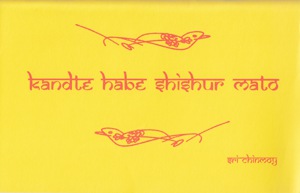 kandte habe shishur mato
sri chinmoy